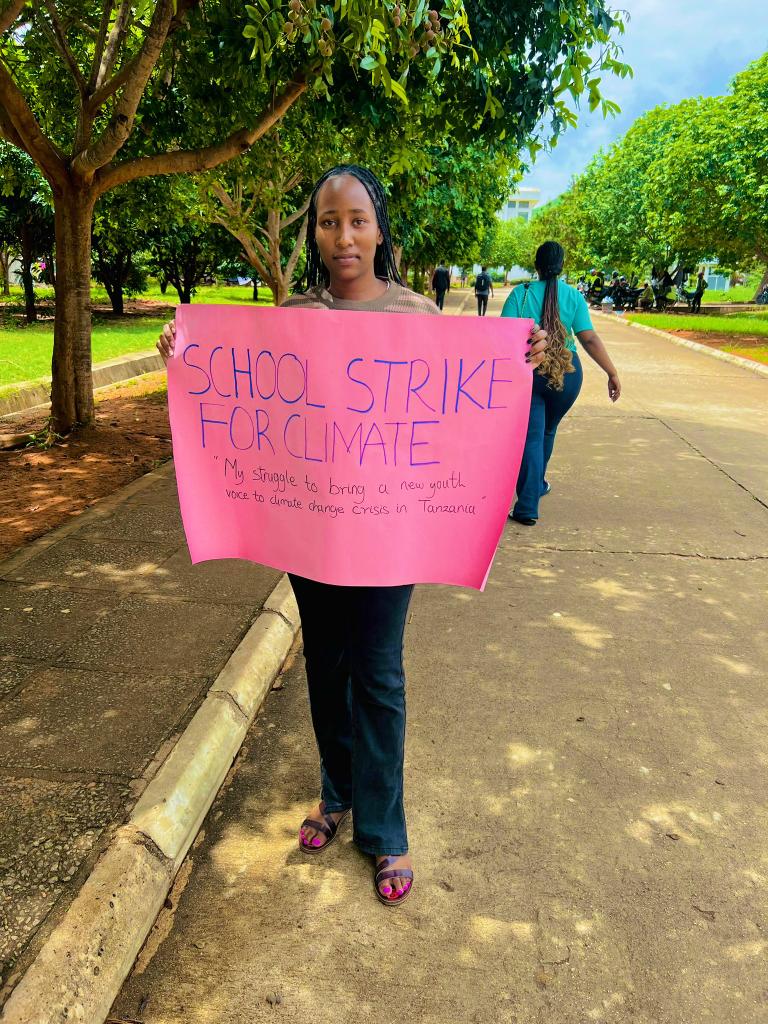 SCHOOL STRIKE
FOR CLIMATE
"My struggle to bring a new youth
voice to climate change crisis in Tanzania"